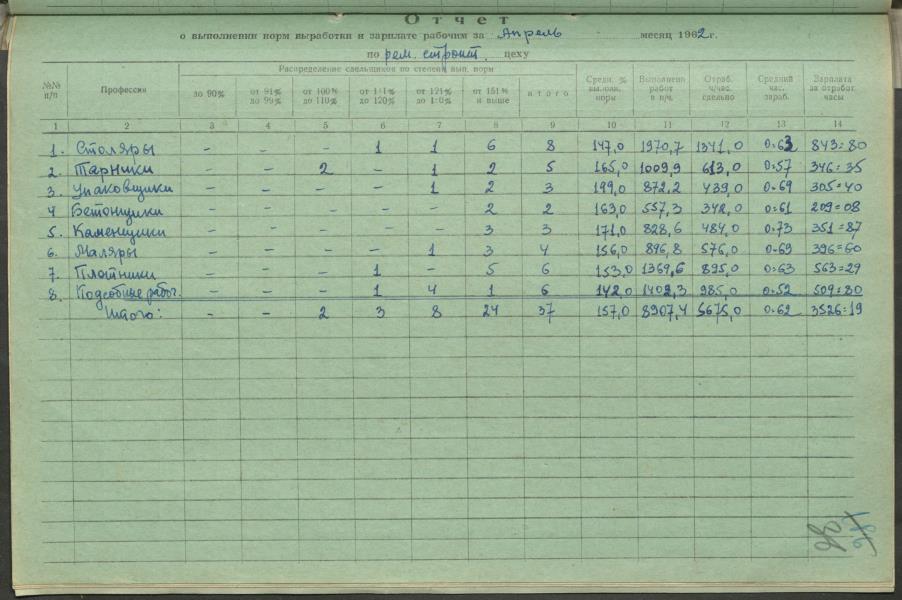 Отчет
о выполнении норм выработки и зарплате рабочим за Апрель месяц 1962 г.
по рем. строит. цеху
№№ п/п Профессия Распределение сдельщиков по степени вып. норм Средн. % выполн. нормы Выполнено работ в н/ч. Отраб. ч/час. сдельно Средний час. зараб. Зарплата за отработ. часы
до 90% от 91% до 99% от 100% до 110% от 111% до 120% от 121% до 150% от 151% и выше итого
1 2 3 4 5 6 7 8 9 10 11 12 13 14
1. Столяры - - - 1 1 6 8 147,0 1970,7 1341,0 0=63 843=80
2. Тарники - - 2 - 1 2 5 165,0 1009,9 613,0 0=57 346=35
3. Упаковщики - - - - 1 2 3 199,0 872,2 439,0 0=69 305=40
4 Бетонщики - - - - - 2 2 163,0 557,3 342,0 0=61 209=08
5. Каменщики - - - - - 3 3 171,0 828,6 484,0 0=73 351=87
6. Маляры - - - - 1 3 4 156,0 896,8 576,0 0=69 396=60
7. Плотники - - - 1 - 5 6 153,0 1369,6 895,0 0=63 563=29
8. Подсобные работ. - - - 1 4 1 6 142,0 1402,3 985,0 0=52 509=80
Итого: - - 2 3 8 24 37 157,0 8907,4 5675,0 0=62 3526=19